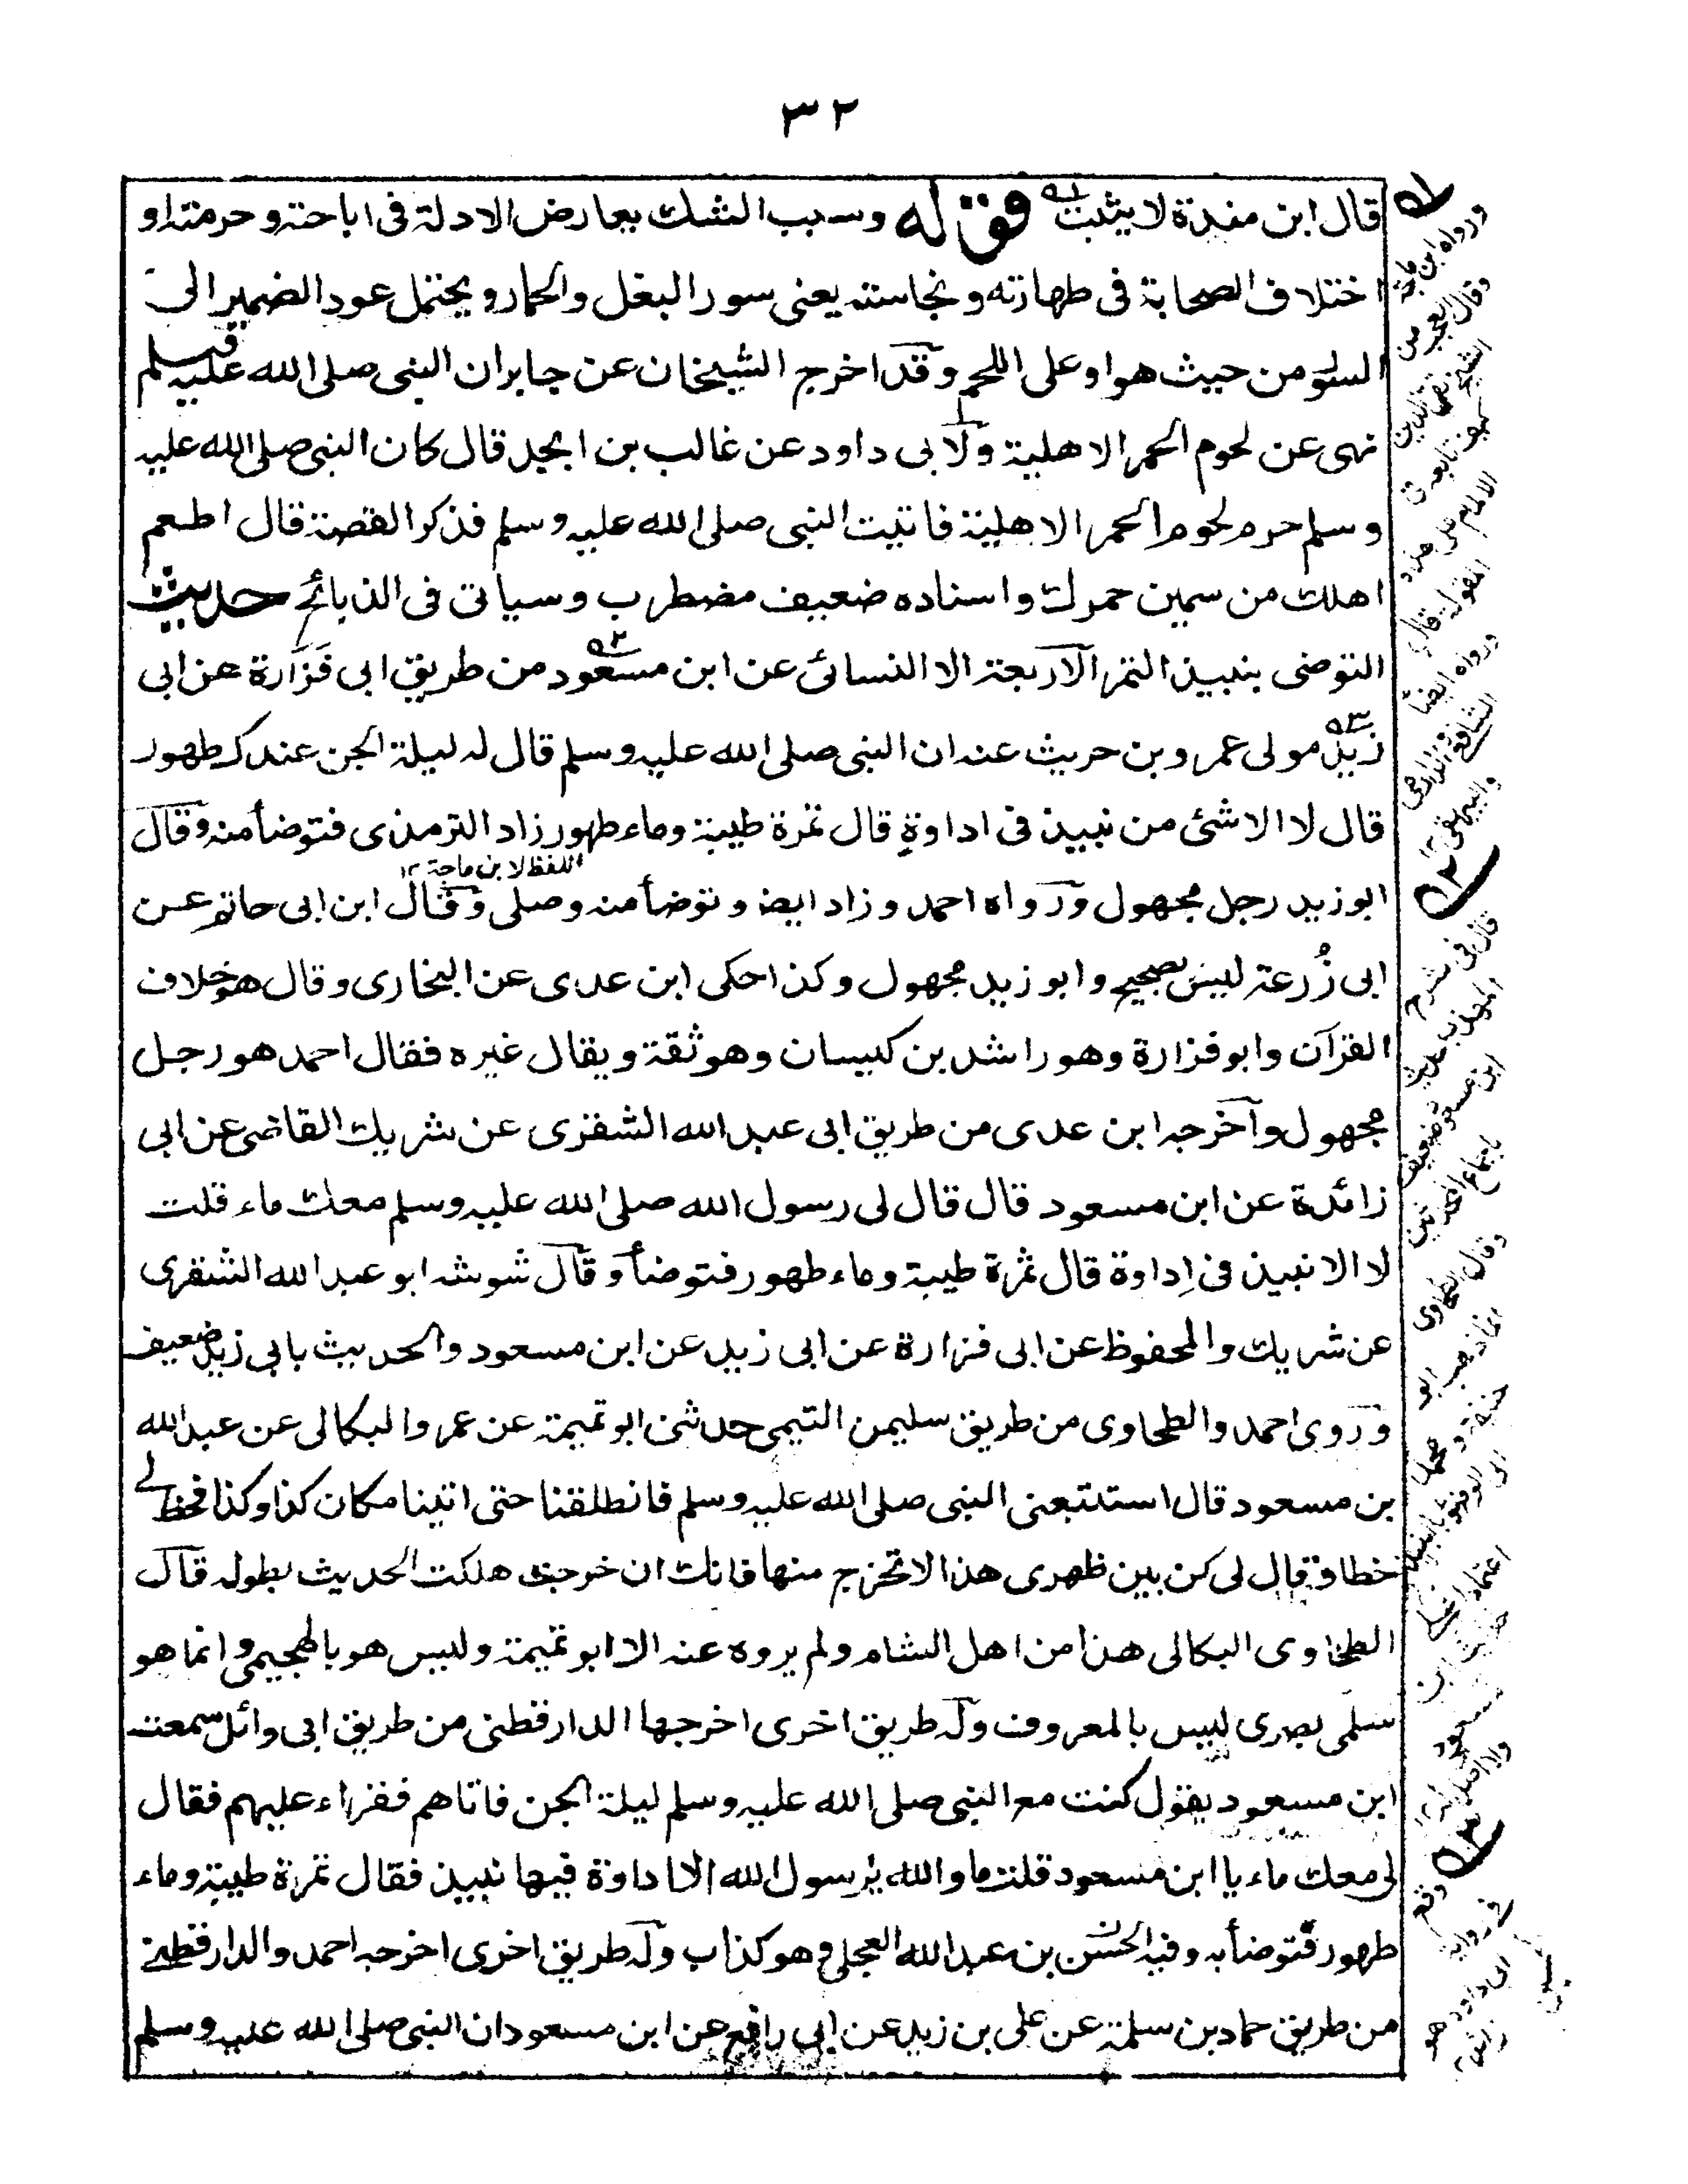 ٣٢
قال ابن مندة لا يثبت قوله وسبب الشك تعارض الادلة فى اباحته وحرمته او
اختلاف الصحابة فى طهارته ونجاسته يعنى سور البغل والحمار ويحتمل عود الضمير الى
السؤر من حيث هو او على اللحم وقد اخرج الشيخان عن جابر ان النبى صلى الله عليه وسلم
نهى عن لحوم الحمر الاهلية ولابى داود عن غالب بن ابجد قال كان النبى صلى الله عليه
وسلم حرم لحوم الحمر الاهلية فاتيت النبى صلى الله عليه وسلم فذكر القصة قال اطعم
اهلك من سمين حمرك واسناده ضعيف مضطرب وسياتى فى الذبائح حديث
التوضى بنبيذ التمر الاربعة الا النسائى عن ابن مسعود من طريق ابى فَزَارة عن ابى
زيد مولى عمرو بن حريث عنه ان النبى صلى الله عليه وسلم قال له ليلة الجن عندك طهور
قال لا الا شئ من نبيذ فى اداوةٍ قال تمرة طيبة وماء طهور زاد الترمذى فتوضأ منه وقال
اللفظ لابن ماجة ١٢
ابو زيد رجل مجهول ورواه احمد وزاد ايضا وتوضأ منه وصلى وقال ابن ابى حاتم عن
ابى زُرعة ليس بصحيح وابو زيد مجهول وكذا حكى ابن عدى عن البخارى وقال هو خلاف
القرآن وابو فزارة وهو راشد بن كيسان وهو ثقة ويقال غيره فقال احمد هو رجل
مجهول واخرجه ابن عدى من طريق ابى عبد الله الشقرى عن شريك القاضى عن ابى
زائدة عن ابن مسعود قال قال لى رسول الله صلى الله عليه وسلم معك ماء قلت
لا الا نبيذ فى اِداوة قال تمرة طيبة وماء طهور فتوضأ وقال شوشه ابو عبد الله الشقرى
عن شريك والمحفوظ عن ابى فزارة عن ابى زيد عن ابن مسعود والحديث بابى زيد ضعيف
وروى احمد والطحاوى من طريق سليمن التيمى حدثنى ابو تميمة عن عمرو البكالى عن عبد الله
بن مسعود قال استتبعنى النبى صلى الله عليه وسلم فانطلقنا حتى اتينا مكان كذا وكذا فخط لى
خطا وقال لى كن بين ظهرى هذا لا تخرج منها فانك ان خرجت هلكت الحديث بطوله قال
الطحاوى البكالى هذا من اهل الشام ولم يروه عنه الا ابو تميمة وليس هو بالهجيمى وانما هو
سلمى بصرى ليس بالمعروف وله طريق اخرى اخرجها الدارقطنى من طريق ابى وائل سمعت
ابن مسعود يقول كنت مع النبى صلى الله عليه وسلم ليلة الجن فاتاهم فقراء عليهم فقال
لى معك ماء يا ابن مسعود قلت ما والله يٰرسول الله الا اداوة فيها نبيذ فقال تمرة طيبة وماء
طهور فتوضأ به وفيه الحسن بن عبد الله العجلى وهو كذاب وله طريق اخرى اخرجه احمد والدارقطنى
من طريق حماد بن سلمة عن على بن زيد عن ابى رافع عن ابن مسعود ان النبى صلى الله عليه وسلم
ورواه ابن ماجة
وقال العجب من
الشيخ تقى الدين
كيف تابعه فى
الامام على هذه
المقولة
ورواه ايضاً
الشافعى والدارمى
والبيهقى ١٢
قال فى شرح
المهذب حديث
ابن مسعود ضعيف
باجماع المحدثين
وقال الطحاوى
انما ذهب ابو
حنيفة ومحمد
الى الوضوء بالنبيذ
اعتمادا على
حديث ابن
مسعود
ولا اصل له
وقع
فى رواية
ابى داود هو